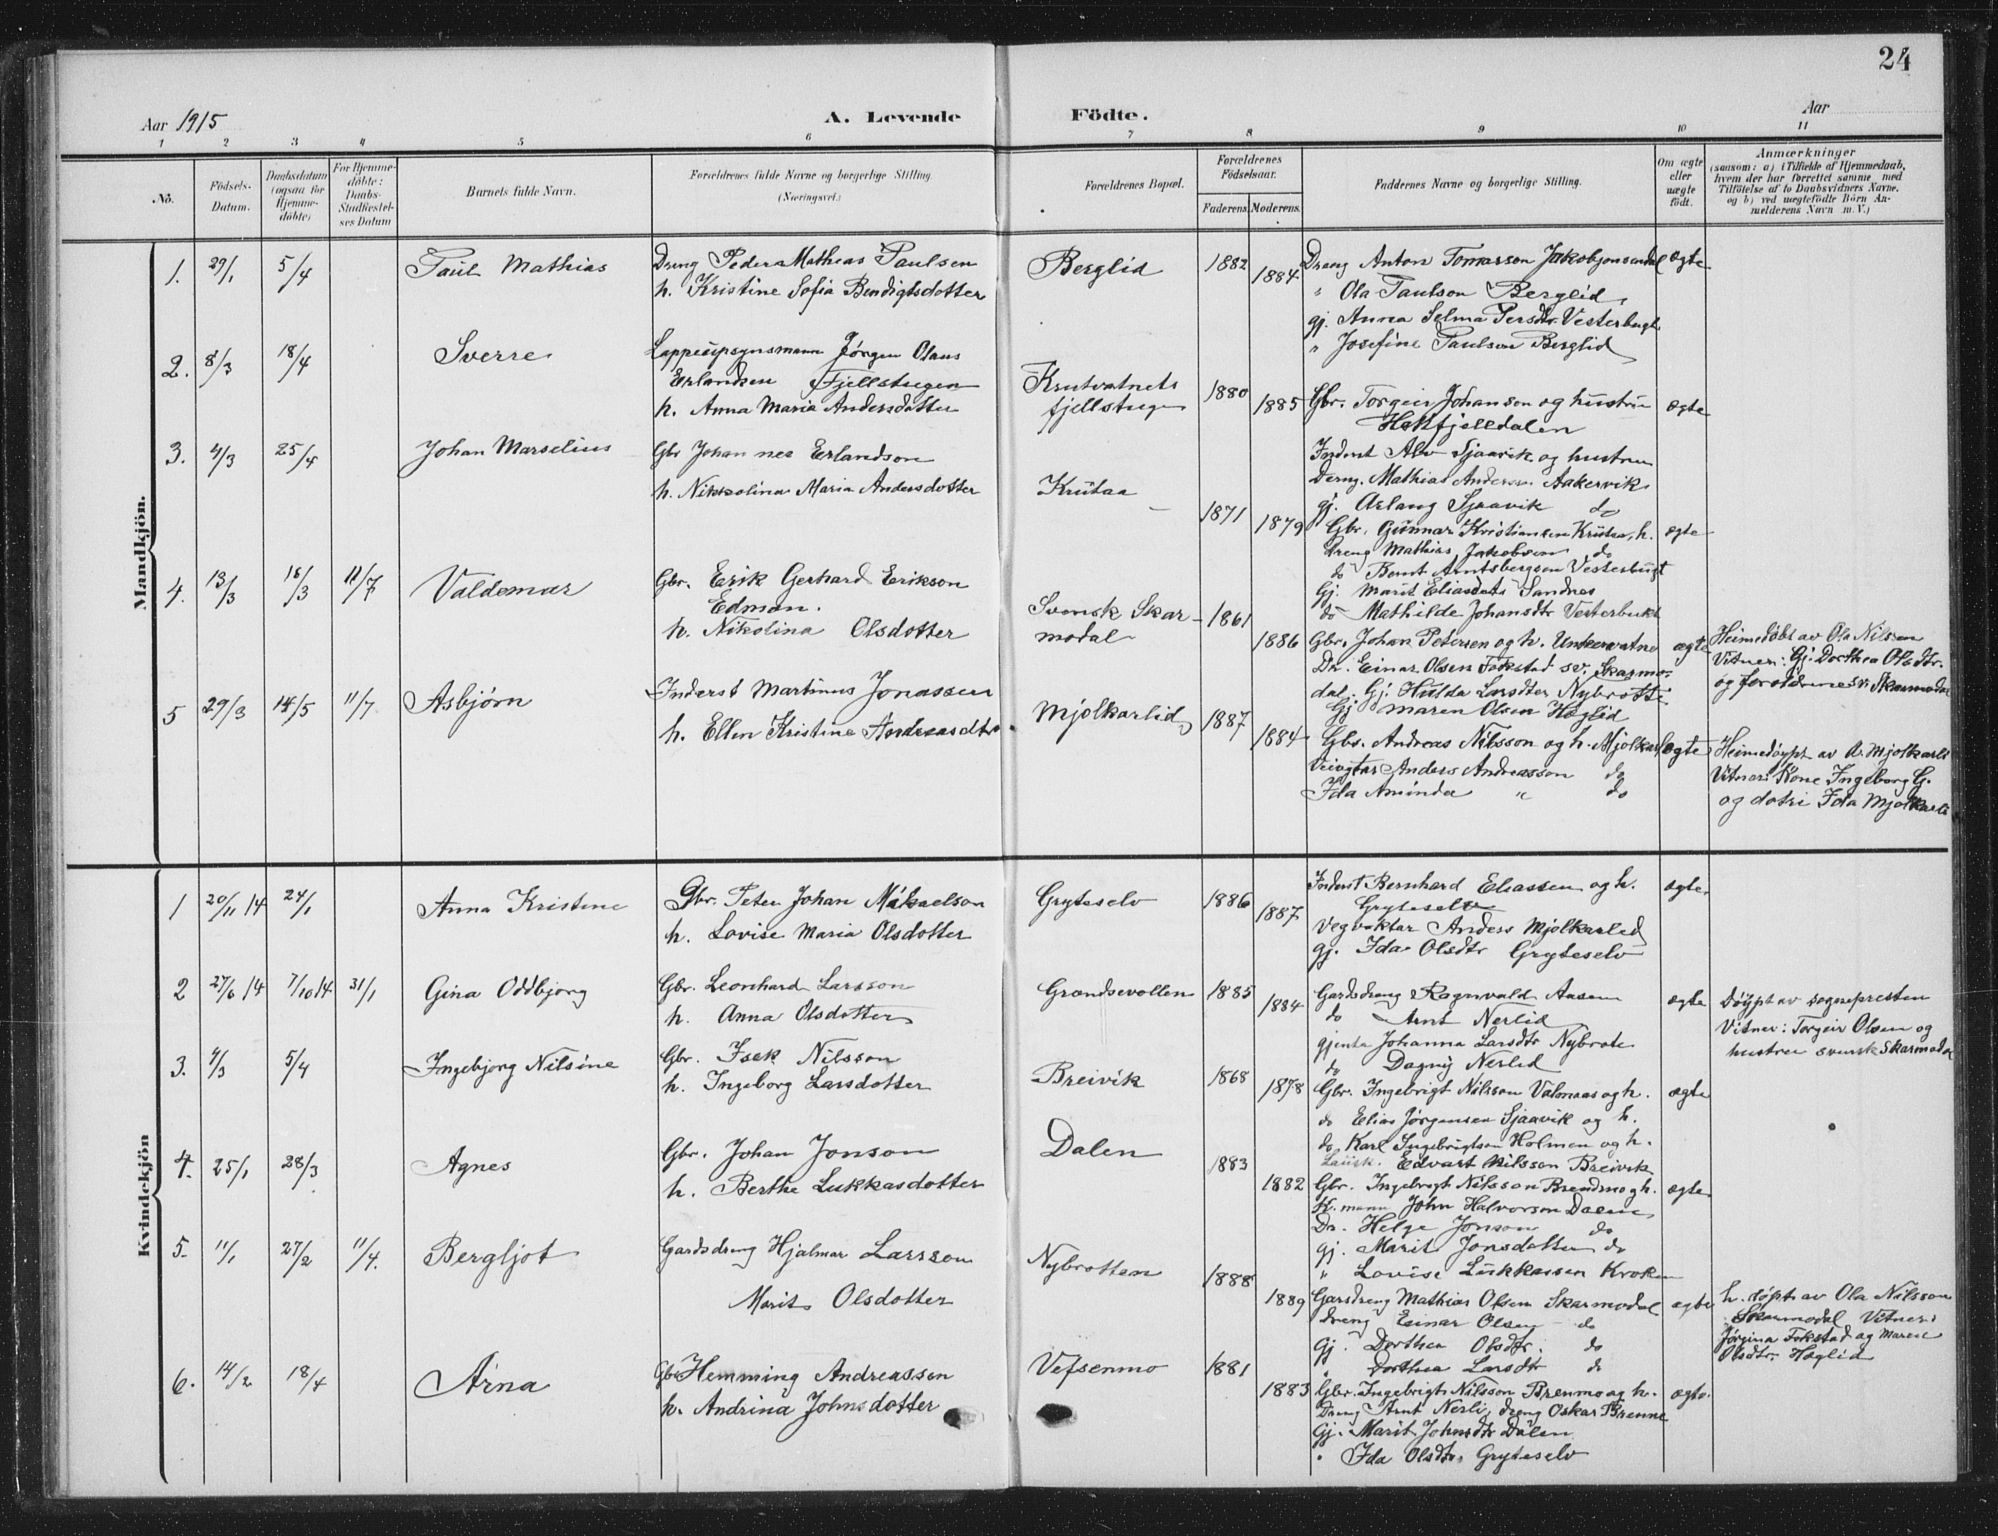 24
Aar 1915
A. Levende Födte.
Aar
1 2 3 4 5 6 7 8 9 10 11
No.
Födsels-
Datum.
Daabsdatum
(ogsaa for
Hjemme-
döbte)
For Hjemme-
döbte:
Daabs-
Stadfæstel-
ses Datum
Barnets fulde Navn.
Forældrenes fulde Navne og borgerlige Stilling.
(Næringsvei.)
Forældrenes Bopæl.
Forældrenes
Födselsaar.
Faderens. Moderens.
Faddernes Navne og borgerlige Stilling.
Om ægte
eller
uægte
födt.
Anmærkninger
(saasom: a) i Tilfælde af Hjemmedaab,
hvem der har forrettet samme med
Tilföielse af to Daabsvidners Navne.
og b) ved uægtefödte Börn An-
melderens Navn m. V.)
Mandkjön.
1. 29/1 5/4 Paul Mathias
Dreng Peder Mathias Paulsen
h. Kristine Sofia Bendigtsdotter
Berglid 1882 1884
Dreng Anton Tomasson Jakobjonsandal ægte
" Ola Paulson Berglid
gj. Anna Selma Persdtr Vesterbugt
" Josefine Paulson Berglid
2. 8/3 18/4 Sverre
Lappeopsynsmann Jörgen Olaus
Erlandsen Fjellstugen
h. Anna Maria Andersdotter
Krutvatnets
fjellstuge 1880 1885
Gbr. Torgeir Johanson og hustru ægte
Hatfjelldalen
Inderst Alv Sjaavik og hustru
Dreng. Mathias Anderson Aakervik
gj. Aslaug Sjaavik do
3. 4/3 25/4 Johan Marselius
Gbr Johannes Erlandson
h. Nikkolina Maria Andersdotter
Krutaa 1871 1879
Gbr. Gunnar Kristiansen Krutaa, h. ægte
Dreng Mathias Jakobsen do
do Bernt Arntsbergsen Vesterbugt
Gj. Marit Eliasdatr Sandnes
do Mathilde Johansdtr Vesterbukt
4. 13/3 18/3 11/7 Valdemar
Gbr. Erik Gerhard Erikson
Edman.
h. Nikolina Olsdotter
Svensk Skar-
modal 1861 1886
Gbr. Johan Petersen og h. Unkervatne ægte
Dr. Einar Olsen Fokstad sv. Skarmo-
dal. Gj. Hulda Larsdter Nybrotte
Gj Maren Olsen Høglid
Heimedøbt av Ola Nilsen
Vitner: Gj. Dorthea Olsdtr.
og foreldrene sv. Skarmodal
5 29/3 14/5 11/7 Asbjørn
Inderst Martinus Jonassen
h. Ellen Kristine Andreasdtr
Mjolkarlid 1887 1884
Gbr. Andreas Nilsson og h. Mjolkarli ægte
Veivgtar Anders Andreasson do
Ida Aminda " do
Heimedøypt av A. Mjolkarli
Vitner: Kone Ingeborg G.
og dotri Ida Mjolkarli
Kvindekjön
1 20/11 14 24/1 Anna Kristine
Gbr. Peter Johan Mikaelson
h. Lovise Maria Olsdotter
Gryteselv 1886 1887
Inderst Bernhard Eliassen og h. ægte
Gryteselv
Vegvaktar Anders Mjolkarlid
gj. Ida Olsdtr Gryteselv
2 27/6 14 7/10 14 31/1 Gina Oddbjorg
Gbr. Leonhard Larsson
h. Anna Olsdotter
Grandsevollen 1885 1884
Gardsdreng Ragnvald Aasen ægte
do Arnt Nerlid
gjenta Johanna Larsdtr Nybrote
do Dagny Nerlid
Døypt av sognepresten
Vitner: Torgeir Olsen og
hustru svensk Skarmodal
3. 4/3 5/4 Ingebjorg Nilsine
Gbr. Isek Nilsson
h. Ingeborg Larsdotter
Breivik 1868 1878
Gbr. Ingebrigt Nilsson Valmaas og h. ægte
do Elias Jørgensen Sjaavik og h.
do Karl Ingebrigtsen Holmen og h.
Lausk. Edvart Nilsson Breivik
4. 25/1 28/3 Agnes
Gbr. Johan Jonson
h. Berthe Lukkasdotter
Dalen 1883 1882
Gbr. Ingebrigt Nilsson Brendmo og h. ægte
K. mann John Halvorson Dalen
Dr. Helge Jonson do
gj. Marit Jonsdotter do
" Lovise Lukkassen Kroken
5. 11/1 27/2 11/4. Bergljot
Gardsdreng Hjalmar Larsson
Marit Olsdotter
Nybrotten 1888 1889
Garsdreng Mathias Olsen Skarmodal ægte
dreng Einar Olsen do
Gj. Dorthea Olsdtr. do
" Dorthea Larsdtr do
h. døpt av Ola Nilsson
Skarmodal Vitner:
Jörgina Fokstad og Maren
Olsdtr. Høglid
6. 14/2 18/4 Arna
Gbr Hemming Andreassen
h. Andrina Johnsdotter
Vefsenmo 1881 1883
Gbr. Ingebrigt Nilsson Brenmo og h. ægte.
Dreng Arnt Nerli, dreng Oskar Brenne
Gj. Marit Johnsdtr Dalen
" Ida Olsdtr. Gryteselv